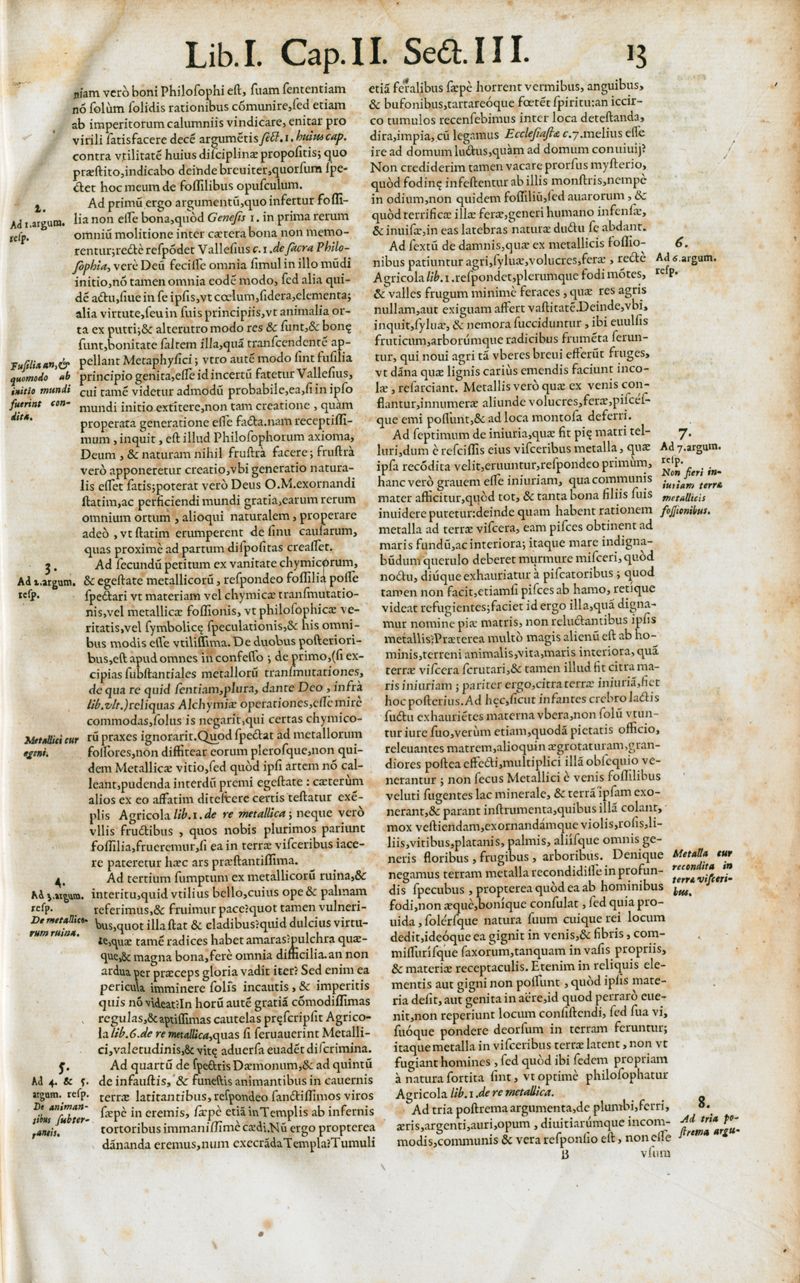 Lib.I. Cap.II. Sect.III. 13
niam verò boni Philosophi est, suam sententiam
nõ solùm solidis rationibus cõmunire,sed etiam
ab imperitorum calumniis vindicare, enitar pro
virili satisfacere decẽ argumẽtis sect.1. huius cap.
contra vtilitatẽ huius disciplinæ propositis; quo
præstito,indicabo deinde breuiter,quorsum spe-
ctet hoc meum de fossilibus opusculum.
2.
Ad 1.argum.
resp.
Ad primũ ergo argumentũ,quo infertur fossi-
lia non esse bona,quòd Genesis 1. in prima rerum
omniũ molitione inter cætera bona non memo-
rentur;rectè respõdet Vallesius c.1.de sacra Philo-
sophia, verè Deũ fecisse omnia simul in illo mũdi
initio,nõ tamen omnia eodẽ modo, sed alia qui-
dẽ actu,siue in se ipsis,vt cœlum,sidera,elementa;
alia virtute,seu in suis principiis,vt animalia or-
ta ex putri;& alterutro modo res & sunt,& bonę
sunt,bonitate saltem illa,quã transcendentẽ ap-
pellant Metaphysici; vtro autẽ modo sint fusilia
Fusilia an,&
quomodo ab
initio mundi
fuerint con-
dita.
principio genita,esse id incertũ fatetur Vallesius,
cui tamẽ videtur admodũ probabile,ea,si in ipso
mundi initio extitere,non tam creatione , quàm
properata generatione esse facta.nam receptissi-
mum , inquit , est illud Philosophorum axioma,
Deum , & naturam nihil frustrà facere; frustrà
verò apponeretur creatio,vbi generatio natura-
lis esset satis;poterat verò Deus O.M.exornandi
statim,ac perficiendi mundi gratia,earum rerum
omnium ortum , alioqui naturalem , properare
adeò , vt statim erumperent de sinu causarum,
quas proximè ad partum dispositas creasset.
3.
Ad 2.argum.
resp.
Ad secundũ petitum ex vanitate chymicorum,
& egestate metallicorũ, respondeo fossilia posse
spectari vt materiam vel chymicæ transmutatio-
nis,vel metallicæ fossionis, vt philosophicæ ve-
ritatis,vel symbolicę speculationis,& his omni-
bus modis esse vtilissima. De duobus posteriori-
bus,est apud omnes in confesso ; de primo,(si ex-
cipias substantiales metallorũ transmutationes,
de qua re quid sentiam,plura, dante Deo , infrà
lib.vlt.)reliquas Alchymiæ operationes,esse mirè
commodas,solus is negarit,qui certas chymico-
Metallici cur
egeni.
rũ praxes ignorarit.Quod spectat ad metallorum
fossores,non diffitear eorum plerosque,non qui-
dem Metallicæ vitio,sed quòd ipsi artem nõ cal-
leant,pudenda interdũ premi egestate : cæterùm
alios ex eo affatim ditescere certis testatur exẽ-
plis Agricola lib.1.de re metallica; neque verò
vllis fructibus , quos nobis plurimos pariunt
fossilia,frueremur,si ea in terræ visceribus iace-
re pateretur hæc ars præstantissima.
4.
Ad 3.argum.
resp.
De metallico-
rum ruina.
Ad tertium sumptum ex metallicorũ ruina,&
interitu,quid vtilius bello,cuius ope & palmam
referimus,& fruimur pace?quot tamen vulneri-
bus,quot illa stat & cladibus?quid dulcius virtu-
te,quæ tamẽ radices habet amaras?pulchra quæ-
que,& magna bona,ferè omnia difficilia.an non
ardua per præceps gloria vadit iter? Sed enim ea
pericula imminere solis incautis , & imperitis
quis nõ videat?In horũ autẽ gratiã cõmodissimas
regulas,& aptissimas cautelas pręscripsit Agrico-
la lib.6.de re metallica,quas si seruauerint Metalli-
ci,valetudinis,& vitę aduersa euadẽt discrimina.
5.
Ad 4. & 5.
argum. resp.
De animan-
tibus subter-
raneis.
Ad quartũ de spectris Dæmonum,& ad quintũ
de infaustis, & funestis animantibus in cauernis
terræ latitantibus, respondeo sanctissimos viros
sæpè in eremis, sæpè etiã in Templis ab infernis
tortoribus immanissimè cædi.Nũ ergo propterea
dãnanda eremus,num execrãda Templa?Tumuli
etiã feralibus sæpè horrent vermibus, anguibus,
& bufonibus,tartareóque fœtẽt spiritu:an iccir-
co tumulos recensebimus inter loca detestanda,
dira,impia, cũ legamus Ecclesiastæ c.7.melius esse
ire ad domum luctus,quàm ad domum conuiuij?
Non crediderim tamen vacare prorsus mysterio,
quòd fodinę infestentur ab illis monstris,nempè
in odium,non quidem fossiliũ,sed auarorum , &
quòd terrificæ illæ feræ,generi humano infensæ,
& inuisæ,in eas latebras naturæ ductu se abdant.
6.
Ad 6.argum.
resp.
Ad sextũ de damnis,quæ ex metallicis fossio-
nibus patiuntur agri,syluæ,volucres,feræ , rectè
Agricola lib.1.respondet,plerumque fodi mõtes,
& valles frugum minimè feraces , quæ res agris
nullam,aut exiguam affert vastitatẽ.Deinde,vbi,
inquit,syluæ, & nemora succiduntur , ibi euulsis
fruticum,arborúmque radicibus frumẽta serun-
tur, qui noui agri tã vberes breui efferũt fruges,
vt dãna quæ lignis cariùs emendis faciunt inco-
læ , resarciant. Metallis verò quæ ex venis con-
flantur,innumeræ aliunde volucres,feræ,piscés-
que emi possunt,& ad loca montosa deferri.
7.
Ad 7.argum.
resp.
Non fieri in-
iuriam terræ
metallicis
fossionibus.
Ad septimum de iniuria,quæ fit pię matri tel-
luri,dum è rescissis eius visceribus metalla , quæ
ipsa recõdita velit,eruuntur,respondeo primùm,
hanc verò grauem esse iniuriam, qua communis
mater afficitur,quòd tot, & tanta bona filiis suis
inuidere putetur:deinde quam habent rationem
metalla ad terræ viscera, eam pisces obtinent ad
maris fundũ,ac interiora; itaque mare indigna-
bũdum querulo deberet murmure misceri, quòd
noctu, diúque exhauriatur à piscatoribus ; quod
tamen non facit,etiamsi pisces ab hamo, retique
videat refugientes;faciet id ergo illa,quã digna-
mur nomine piæ matris, non reluctantibus ipsis
metallis?Præterea multò magis alienũ est ab ho-
minis,terreni animalis,vita,maris interiora, quã
terræ viscera scrutari,& tamen illud fit citra ma-
ris iniuriam ; pariter ergo,citra terræ iniuriã,fiet
hoc posterius.Ad hęc,sicut infantes crebro lactis
suctu exhauriẽtes materna vbera,non solũ vtun-
tur iure suo,verùm etiam,quodã pietatis officio,
releuantes matrem,alioquin ægrotaturam,gran-
diores postea effecti,multiplici illã obsequio ve-
nerantur ; non secus Metallici è venis fossilibus
veluti sugentes lac minerale, & terrã ipsam exo-
nerant,& parant instrumenta,quibus illã colant,
mox vestiendam,exornandámque violis,rosis,li-
liis,vitibus,platanis, palmis, aliísque omnis ge-
neris floribus , frugibus , arboribus. Denique
Metalla cur
recondita in
terræ visceri-
bus.
negamus terram metalla recondidisse in profun-
dis specubus , propterea quòd ea ab hominibus
fodi,non æquè,boníque consulat , sed quia pro-
uida , solérsque natura suum cuique rei locum
dedit,ideóque ea gignit in venis,& fibris , com-
missurísque saxorum,tanquam in vasis propriis,
& materiæ receptaculis. Etenim in reliquis ele-
mentis aut gigni non possunt , quòd ipsis mate-
ria desit, aut genita in aëre,id quod perrarò eue-
nit,non reperiunt locum consistendi, sed sua vi,
suóque pondere deorsum in terram feruntur;
itaque metalla in visceribus terræ latent , non vt
fugiant homines , sed quòd ibi sedem propriam
à natura sortita sint , vt optimè philosophatur
Agricola lib.1.de re metallica.
8.
Ad tria po-
strema argu-
Ad tria postrema argumenta,de plumbi,ferri,
æris,argenti,auri,opum , diuitiarúmque incom-
modis,communis & vera responsio est , non esse
B vsum